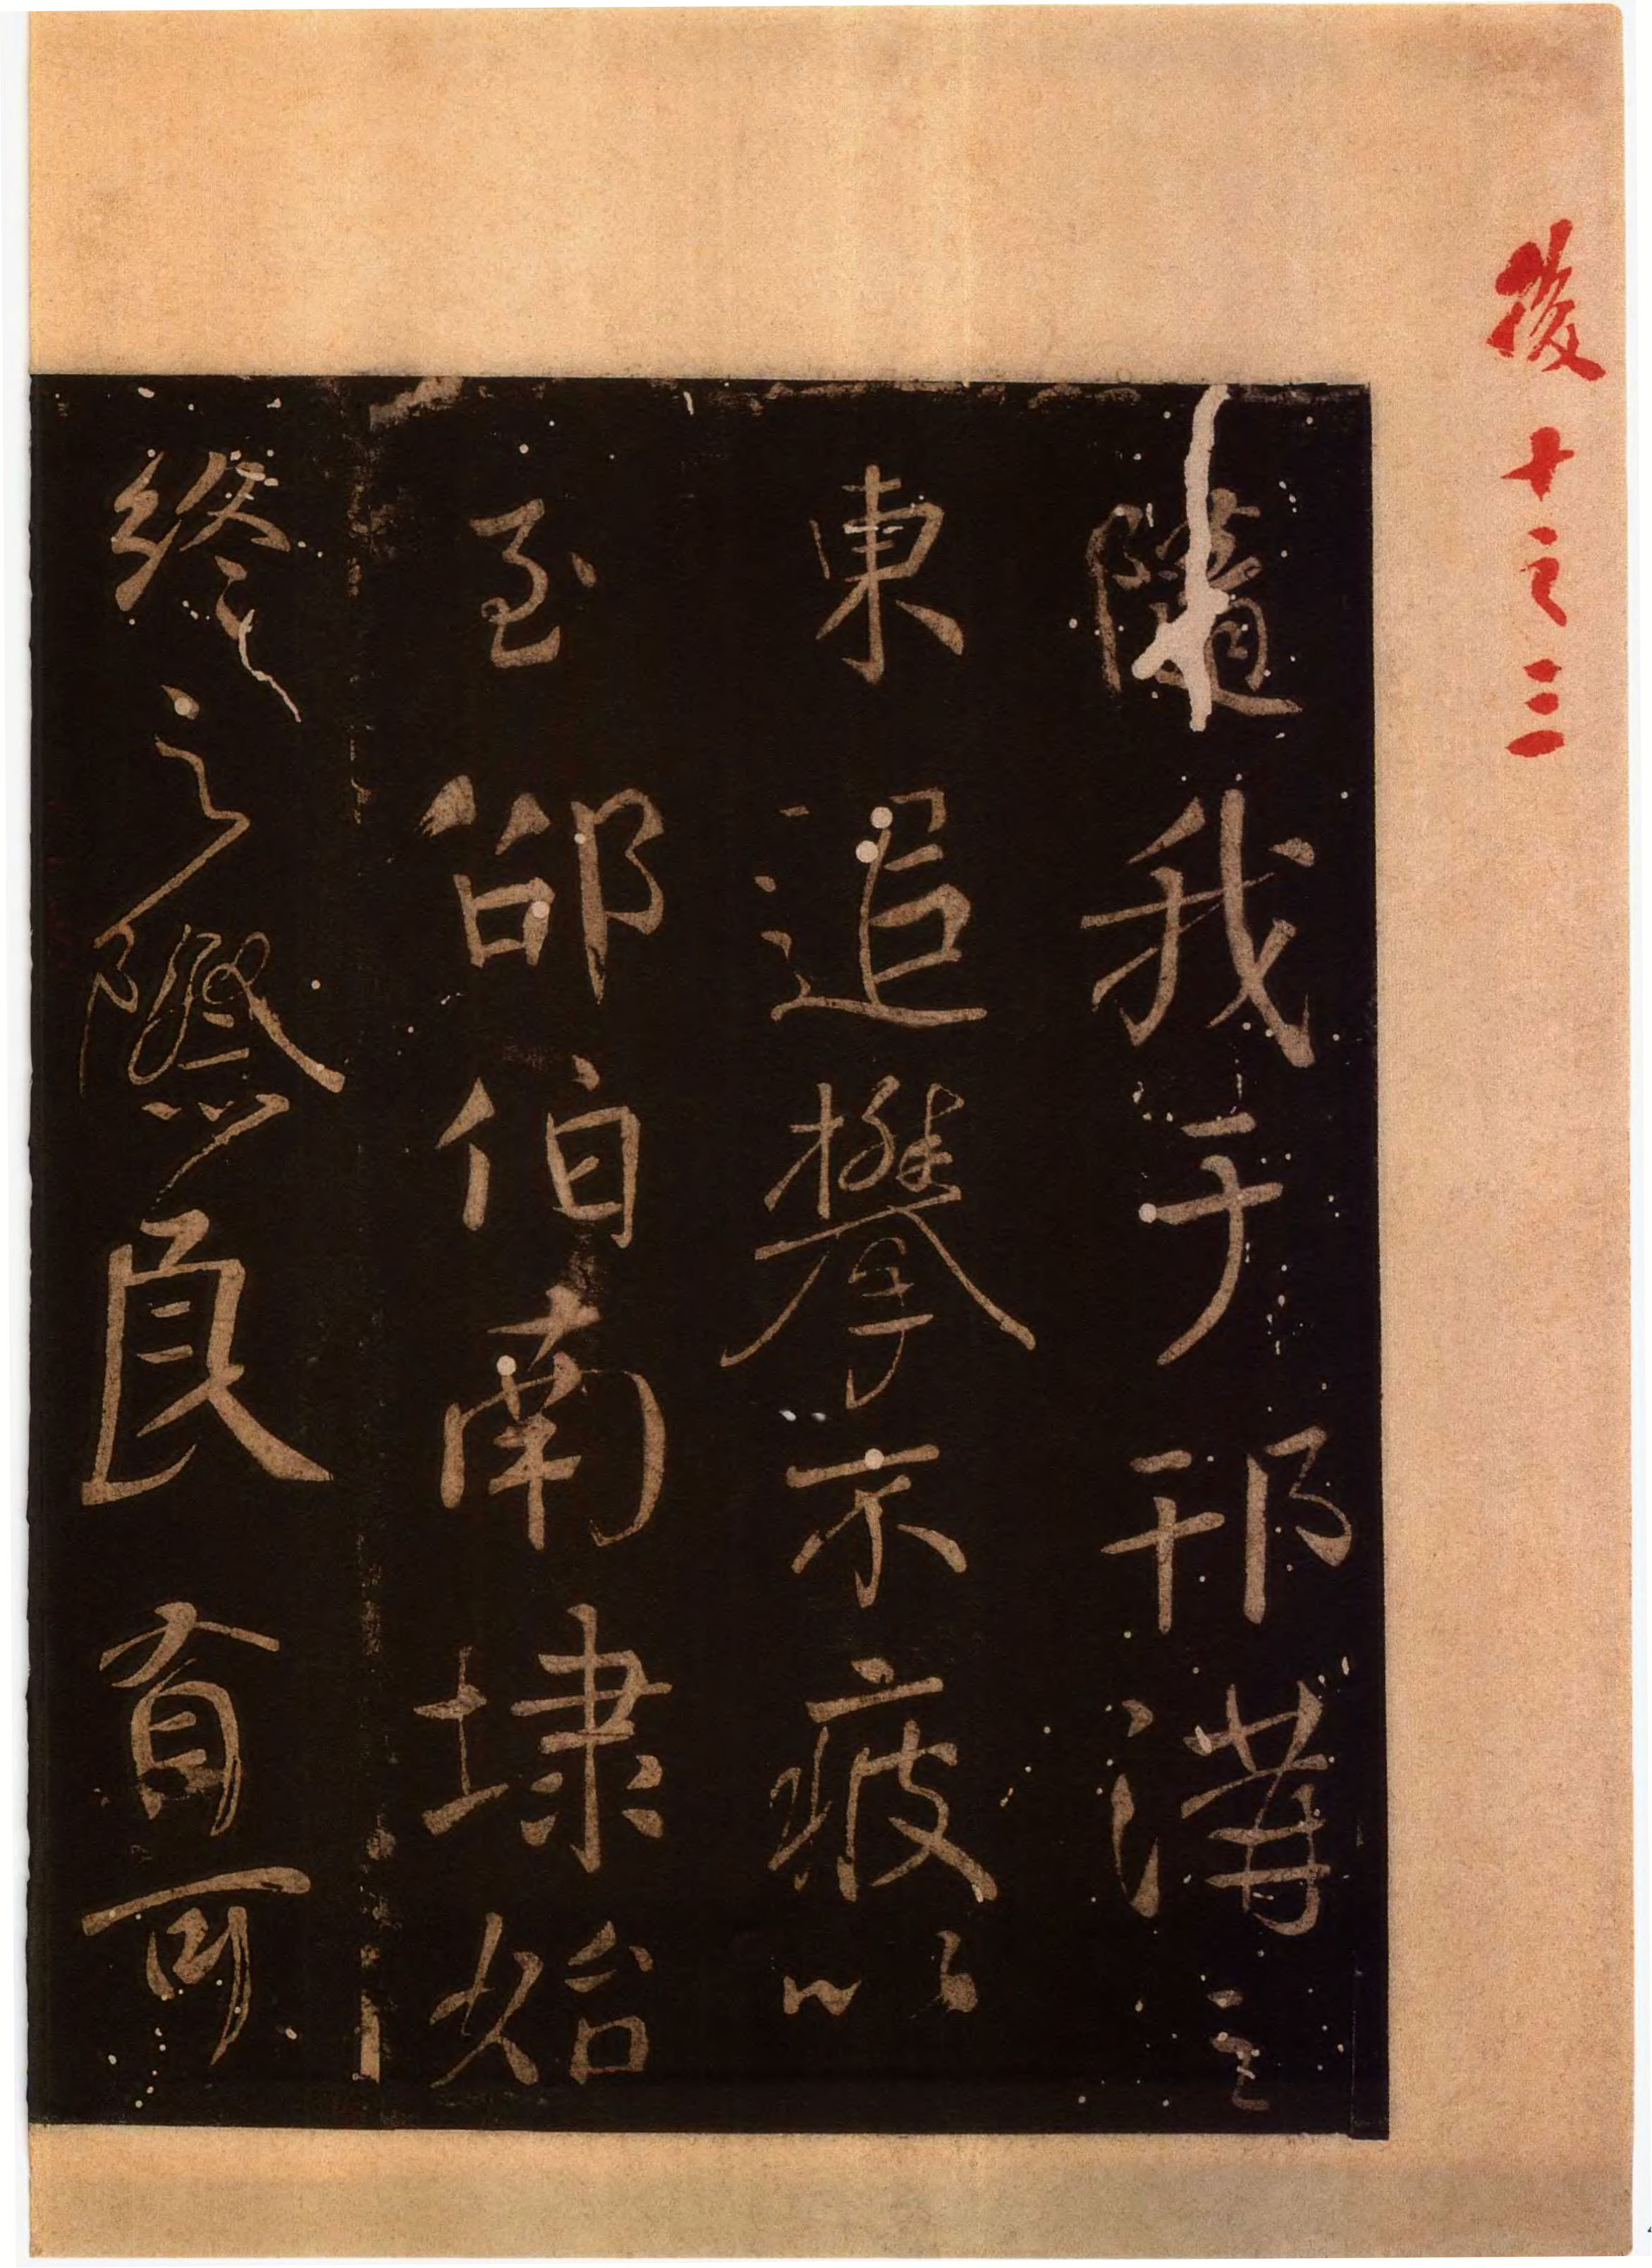 後十之三
隨我于邗溝之
東追攀不疲以
至邵伯南埭始
終之際良有可